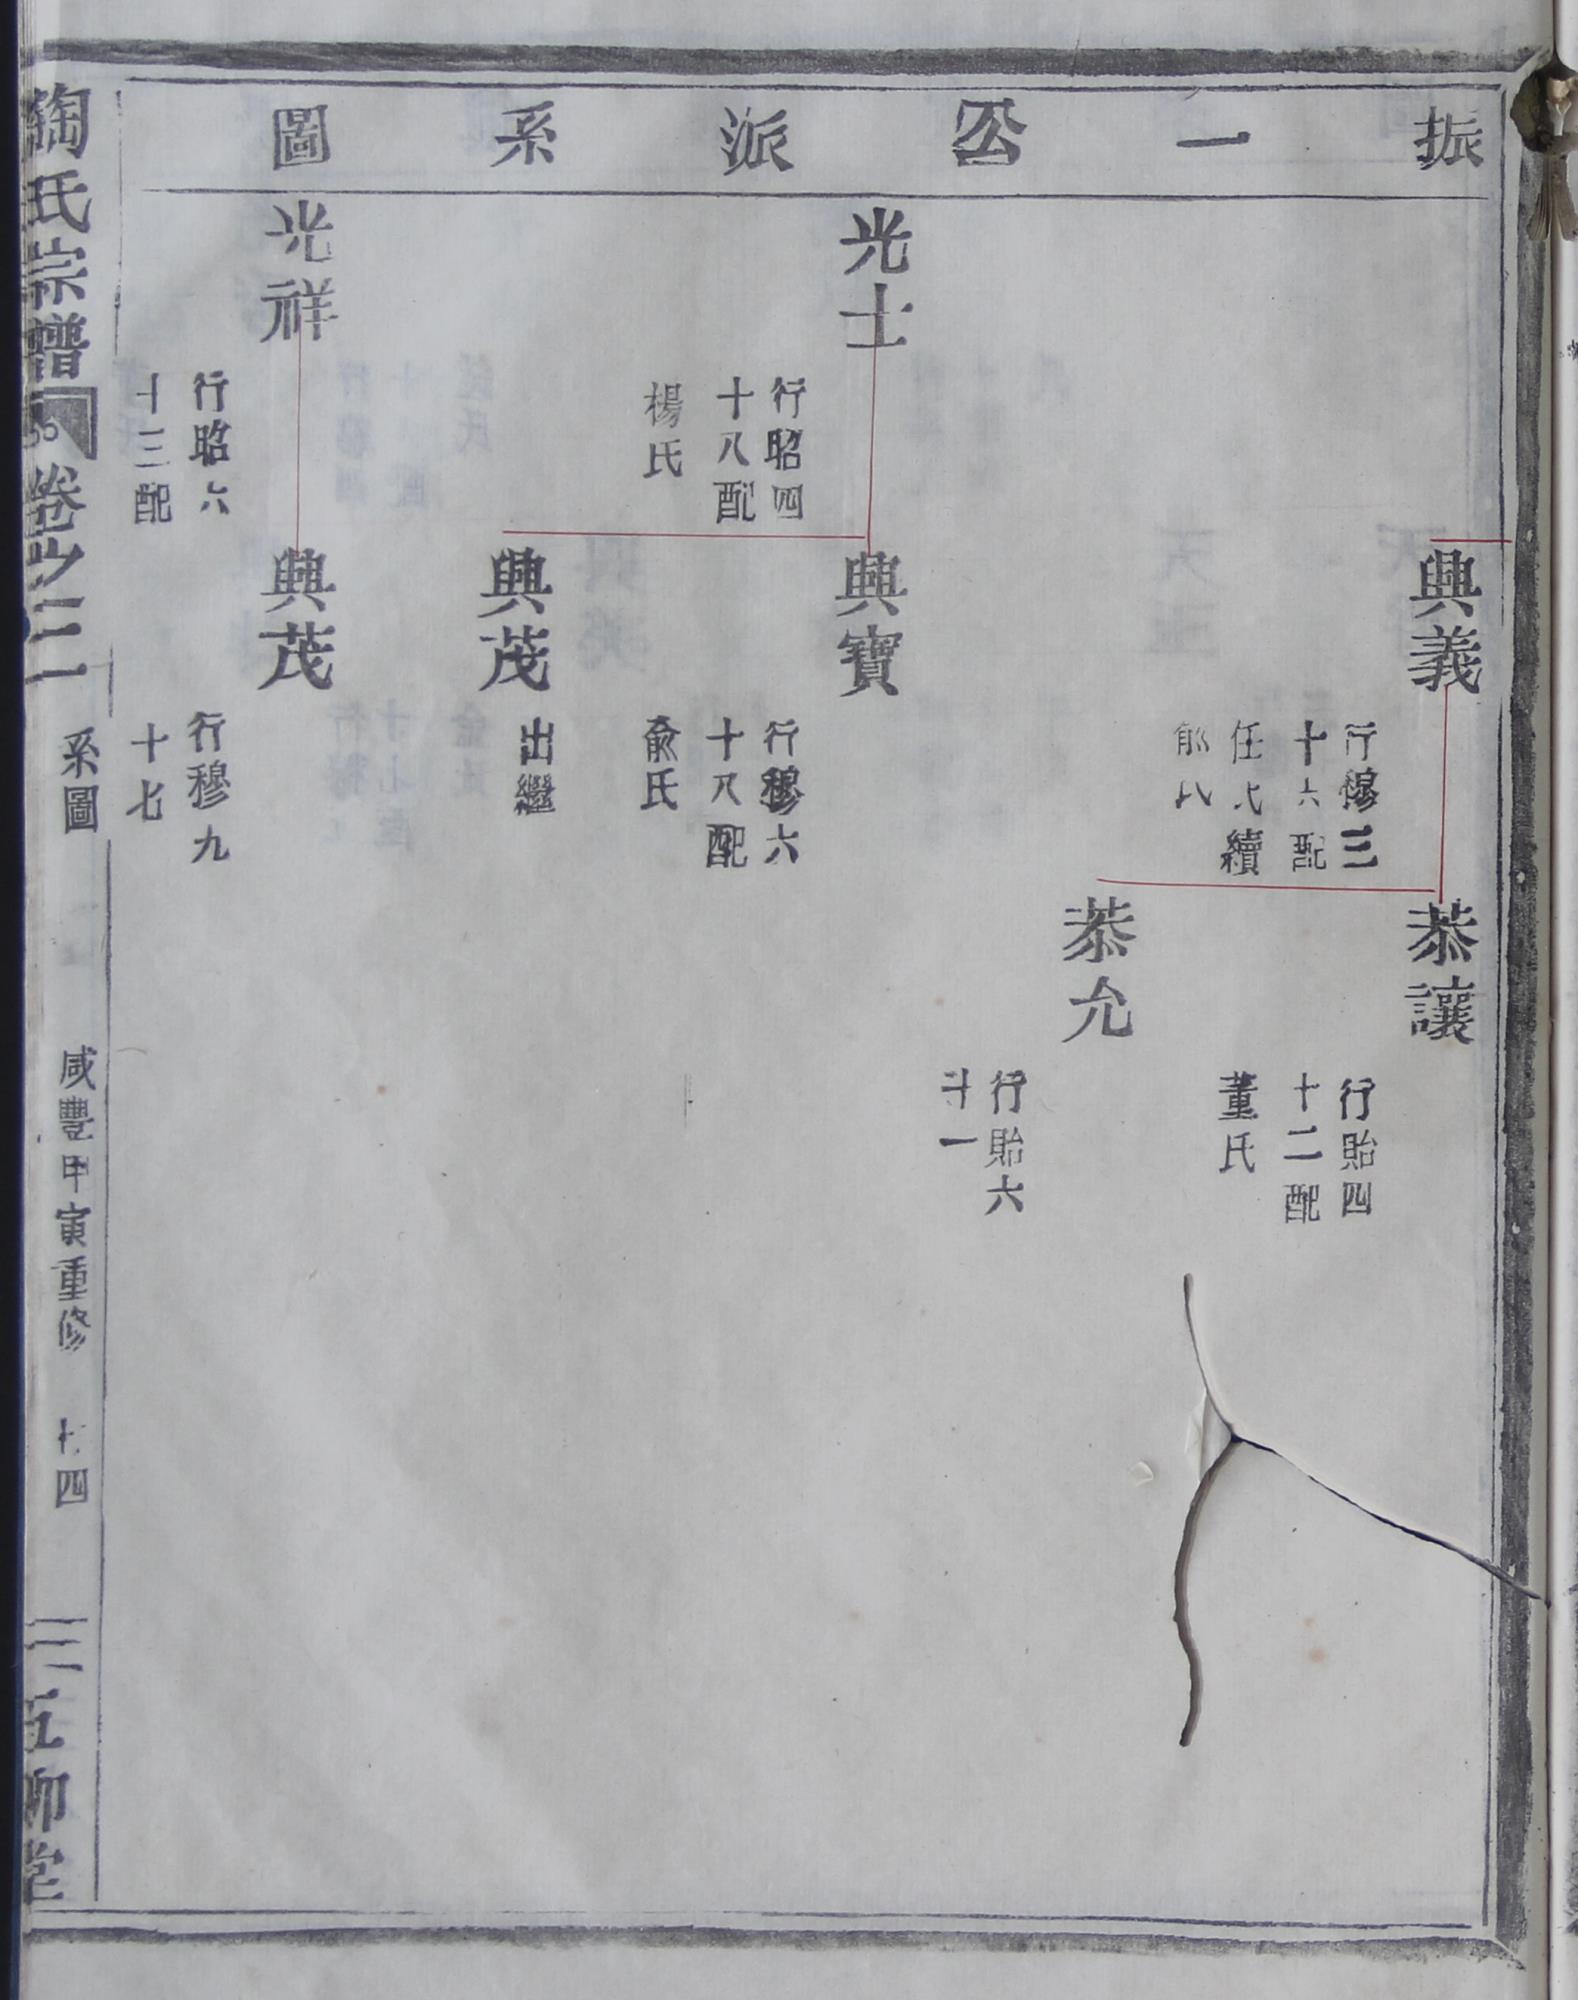 振一公派系圖
興義
行穆三
十六配
任氏續
郁氏
恭讓
行貽四
十二配
董氏
恭允
行貽六
廿一
光士
行昭四
十八配
楊氏
興寶
行穆六
十八配
俞氏
興茂
出繼
光祥
行昭六
十三配
興茂
行穆九
十七
陶氏宗譜
卷之二
系圖
咸豐甲寅重修
十四
五柳堂